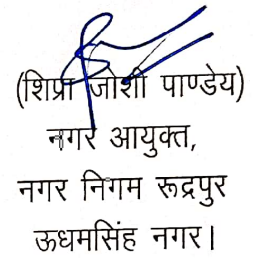 (शिप्रा जोशी पाण्डेय)
नगर आयुक्त,
नगर निगम रूद्रपुर
ऊधमसिंह नगर।